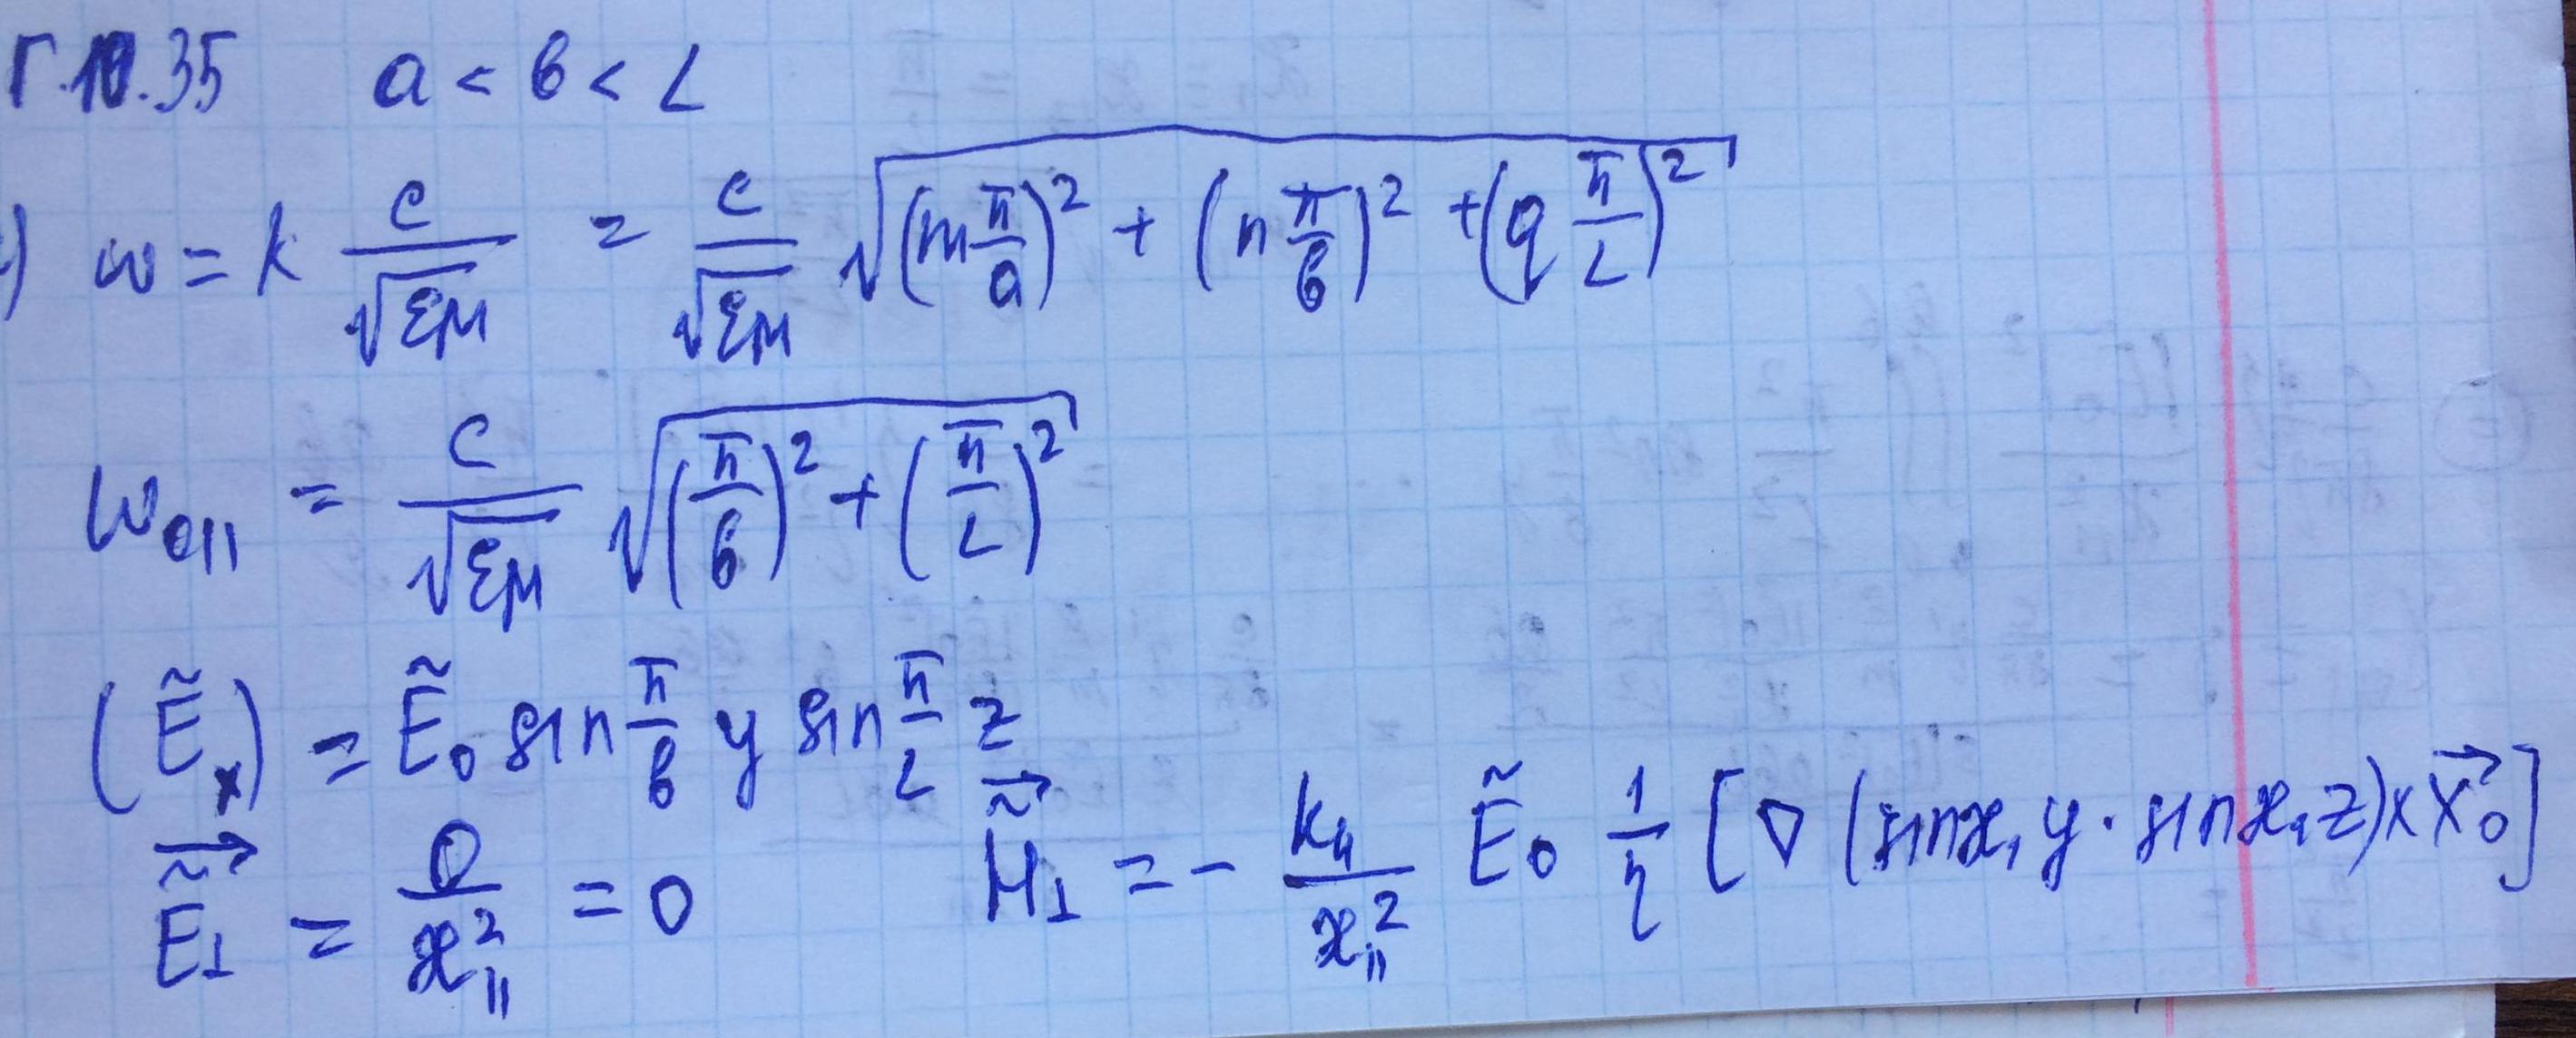 Г.10.35 a < b < L
) ω = k c/√εμ = c/√εμ √((m π/a)² + (n π/b)² + (q π/L)²)
ω₀₁₁ = c/√εμ √((π/b)² + (π/L)²)
(Ẽₓ) = Ẽ₀ sin π/b y sin π/L z
Ẽ⊥ = 0/æ²॥ = 0 H̃⊥ = - k॥/æ॥² Ẽ₀ 1/η [∇ (sin æ₁ y · sin æ₂ z) × x⃗₀]